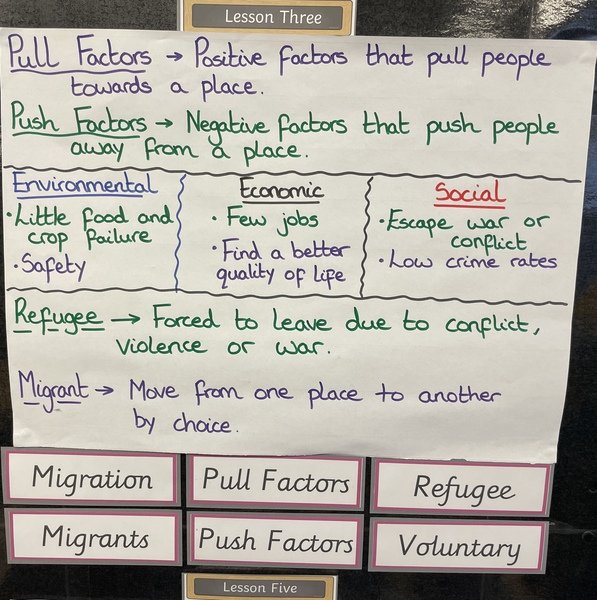 Lesson Three
Pull Factors → Positive factors that pull people
towards a place.
Push Factors → Negative factors that push people
away from a place.
Environmental
• Little food and
crop failure
• Safety
Economic
• Few jobs
• Find a better
quality of life
Social
• Escape war or
conflict
• Low crime rates
Refugee → Forced to leave due to conflict,
violence or war.
Migrant → Move from one place to another
by choice.
Migration
Pull Factors
Refugee
Migrants
Push Factors
Voluntary
Lesson Five